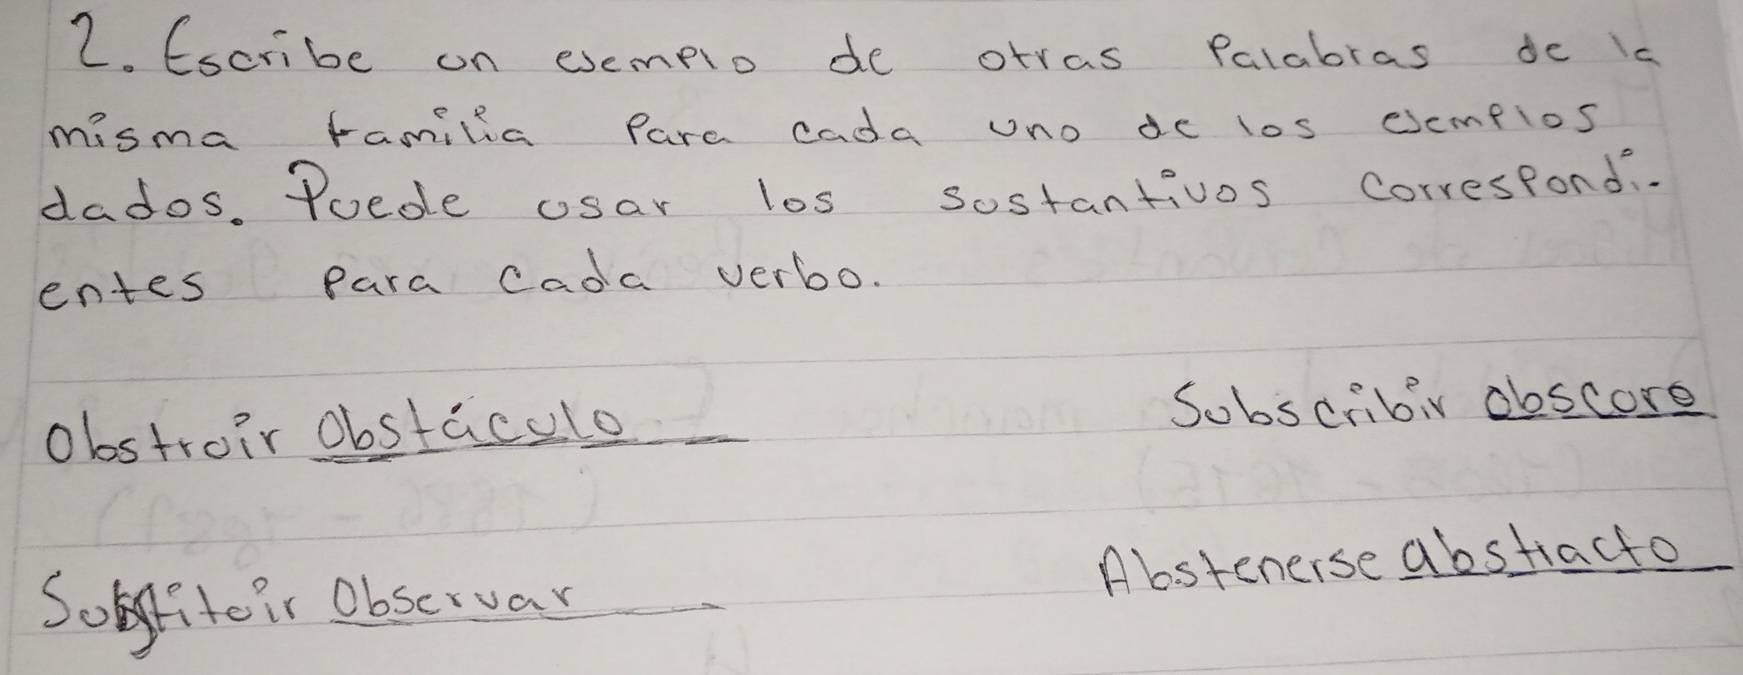 2. Escribe un esemplo de otras Palabras de la
misma familia Para cada uno de los esemplos
dados. Puede usar los sustantivos correspondi-
entes para cada verbo.
Obstruir Obstáculo
Subscribir obscuro
Substituir Observar
Abstenerse abstracto